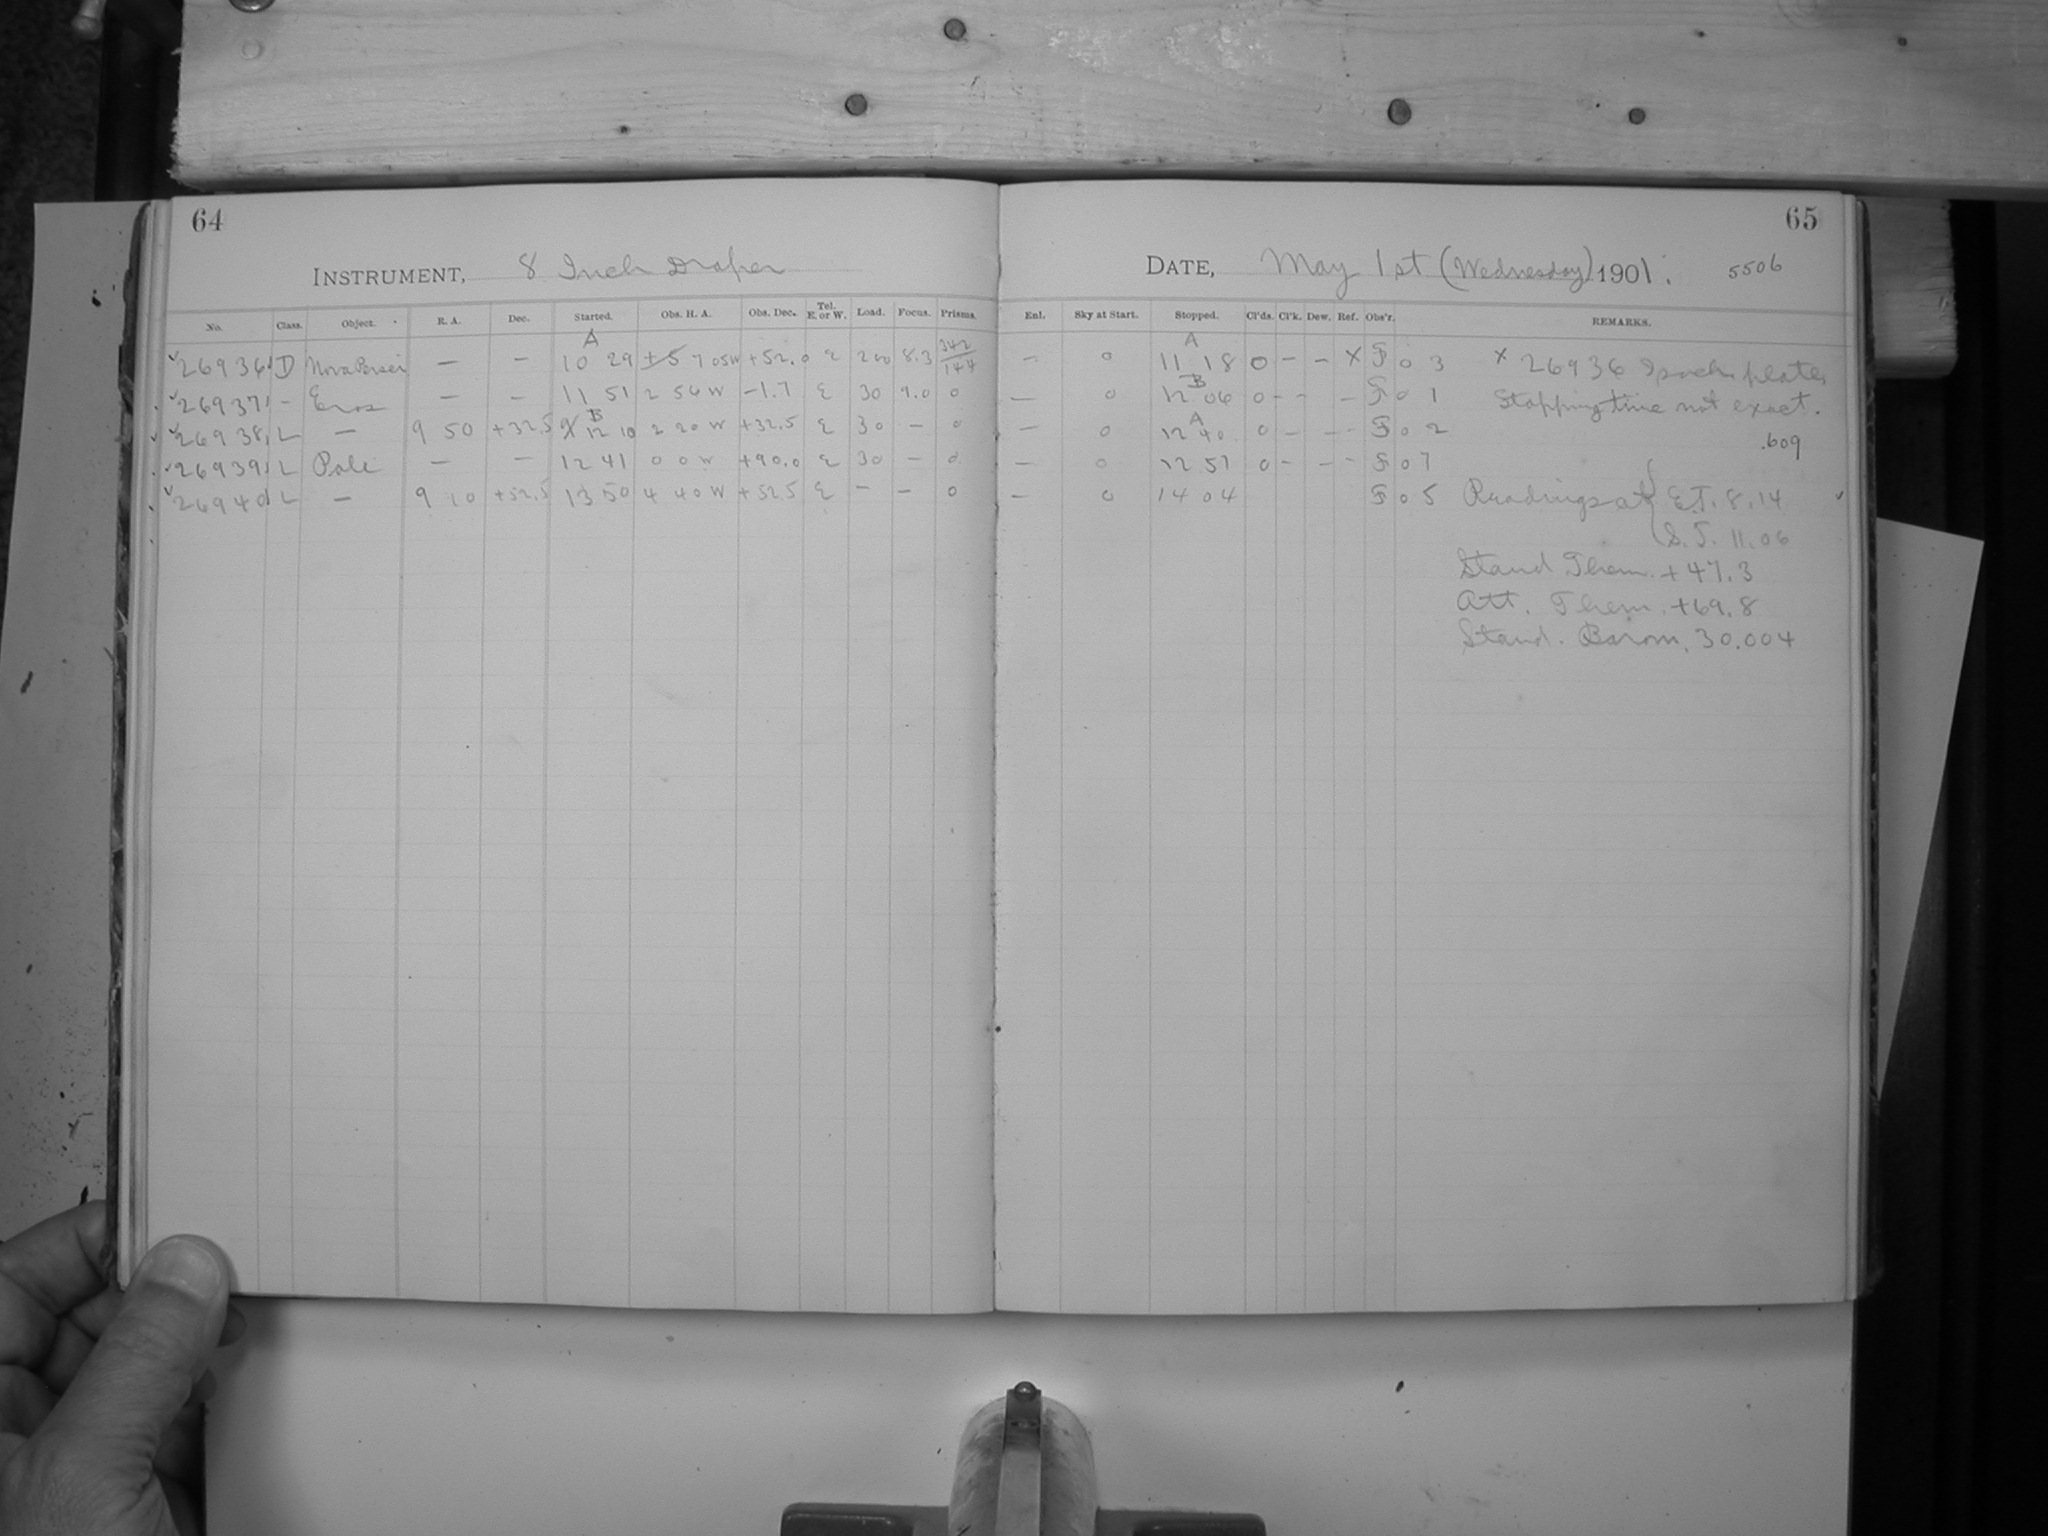 64
INSTRUMENT, 8 Inch Draper
No. Class. Object. R. A. Dec. Started. Obs. H. A. Obs. Dec. Tel. E. or W. Load. Focus. Prisms.
A
26936 D Nova Persei — — 10 29 7 05W +52.0 E 200 8.3 342/144
26937 - Eros — — 11 51 2 56 W -1.7 E 30 9.0 0
B
26938 L — 9 50 +32.5 12 10 2 20 W +32.5 E 30 — 0
26939 L Pole — — 12 41 0 0 W +90.0 E 30 — 0
26940 L — 9 10 +52.5 13 50 4 40 W +52.5 E — — 0
65
DATE, May 1st (Wednesday) 1901. 5506
Enl. Sky at Start. Stopped. Cl'ds. Cl'k. Dew. Ref. Obs'r. REMARKS.
A
— 0 11 18 0 — — X F 0 3 X 26936 plate
B
— 0 12 06 0 - - — F 0 1 Stopping time not exact.
A
— 0 12 40 0 — — - F 0 2 .609
— 0 12 57 0 - — - F 0 7
— 0 14 04 F 0 5 Readings at { E.T. 8.14
S.T. 11.06
Stand Therm. +47.3
Att. Therm. +69.8
Stand. Barom. 30.004